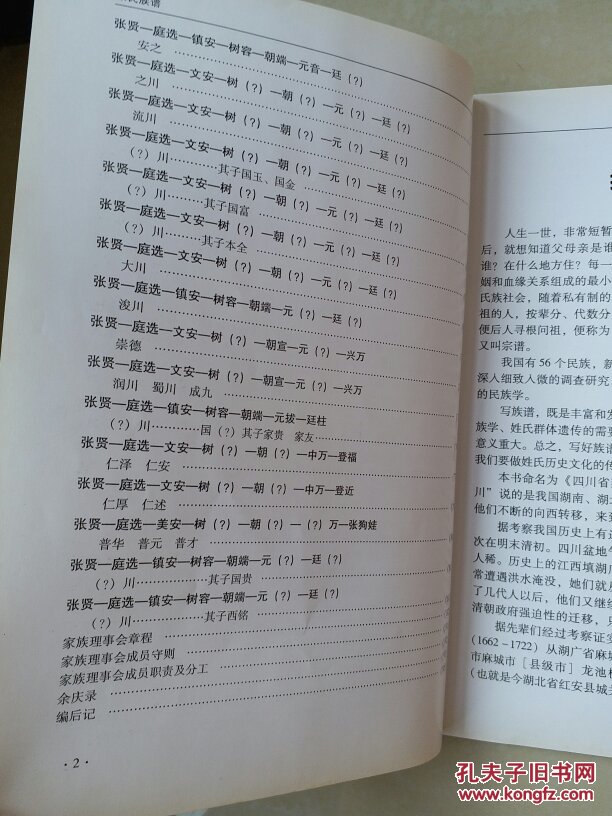 民族谱
张贤—庭选—镇安—树容—朝端—元音—廷（?）
安之
张贤—庭选—文安—树（?）—朝（?）—元（?）—廷（?）
之川
张贤—庭选—文安—树（?）—朝（?）—元（?）—廷（?）
流川
张贤—庭选—文安—树（?）—朝（?）—元（?）—廷（?）
（?）川………其子国玉、国金
张贤—庭选—文安—树（?）—朝（?）—元（?）—廷（?）
（?）川………其子国富
张贤—庭选—文安—树（?）—朝（?）—元（?）—廷（?）
（?）川………其子本全
张贤—庭选—文安—树（?）—朝（?）—元（?）—廷（?）
大川
张贤—庭选—镇安—树容—朝端—元（?）—廷（?）
浚川
张贤—庭选—文安—树（?）—朝宣—元（?）—兴万
崇德
张贤—庭选—文安—树（?）—朝宣—元（?）—兴万
润川　蜀川　成九
张贤—庭选—镇安—树容—朝端—元拔—廷柱
（?）川…………国（?）其子家贵　家友
张贤—庭选—文安—树（?）—朝（?）—中万—登福
仁泽　仁安
张贤—庭选—文安—树（?）—朝（?）—中万—登近
仁厚　仁述
张贤—庭选—美安—树（?）—朝（?）—（?）万—张狗娃
普华　普元　普才
张贤—庭选—镇安—树容—朝端—元（?）—廷（?）
（?）川……………其子国贵
张贤—庭选—镇安—树容—朝端—元（?）—廷（?）
（?）川…………其子西铭
家族理事会章程
家族理事会成员守则
家族理事会成员职责及分工
余庆录
编后记
·2·
人生一世，非常短暂
后，就想知道父母亲是谁
谁？在什么地方住？每一
姻和血缘关系组成的最小
氏族社会，随着私有制的
祖的人，按辈分、代数分
便后人寻根问祖，便称为
又叫宗谱。
我国有56个民族，新
深入细致入微的调查研究
的民族学。
写族谱，既是丰富和发
族学、姓氏群体遗传的需要
意义重大。总之，写好族谱
我们要做姓氏历史文化的传
本书命名为《四川省
川”说的是我国湖南、湖
他们不断的向西转移，来到
据考察我国历史上有
次在明末清初。四川盆地
人稀。历史上的江西填湖
常遭遇洪水淹没，她们就
了几代人以后，他们又继续
清朝政府强迫性的迁移，只
据先辈们经过考察证实
(1662－1722）从湖广省麻城
市麻城市［县级市］龙池
(也就是今湖北省红安县城
孔夫子旧书网
www.kongfz.com